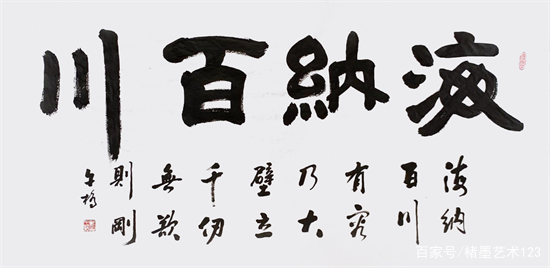 海納百川
海納
百川
有容
乃大
壁立
千仞
無欲
則剛
百家号/楮墨艺术123